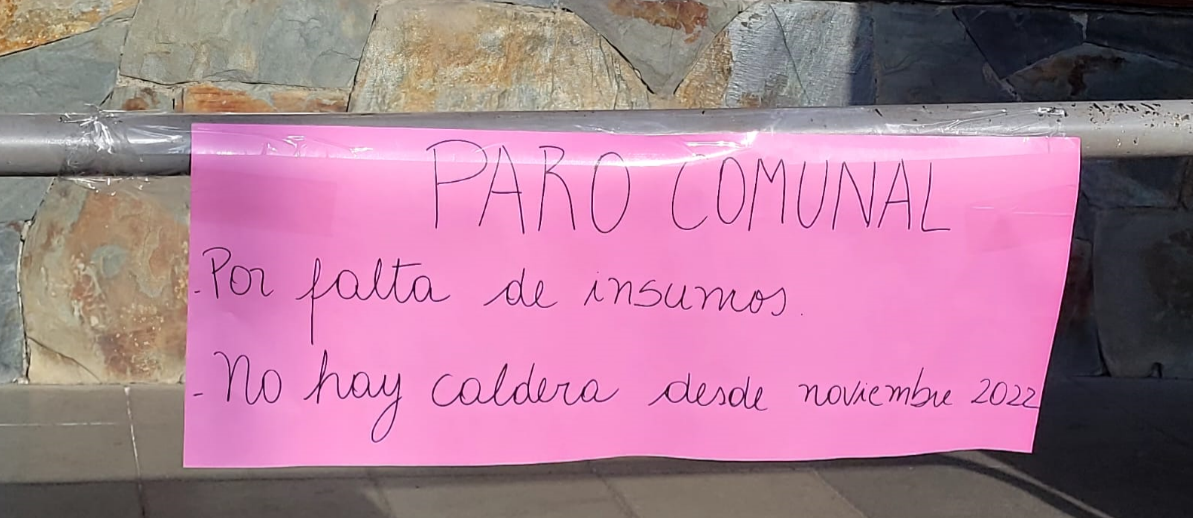 PARO COMUNAL
-Por falta de insumos.
-No hay caldera desde noviembre 2022